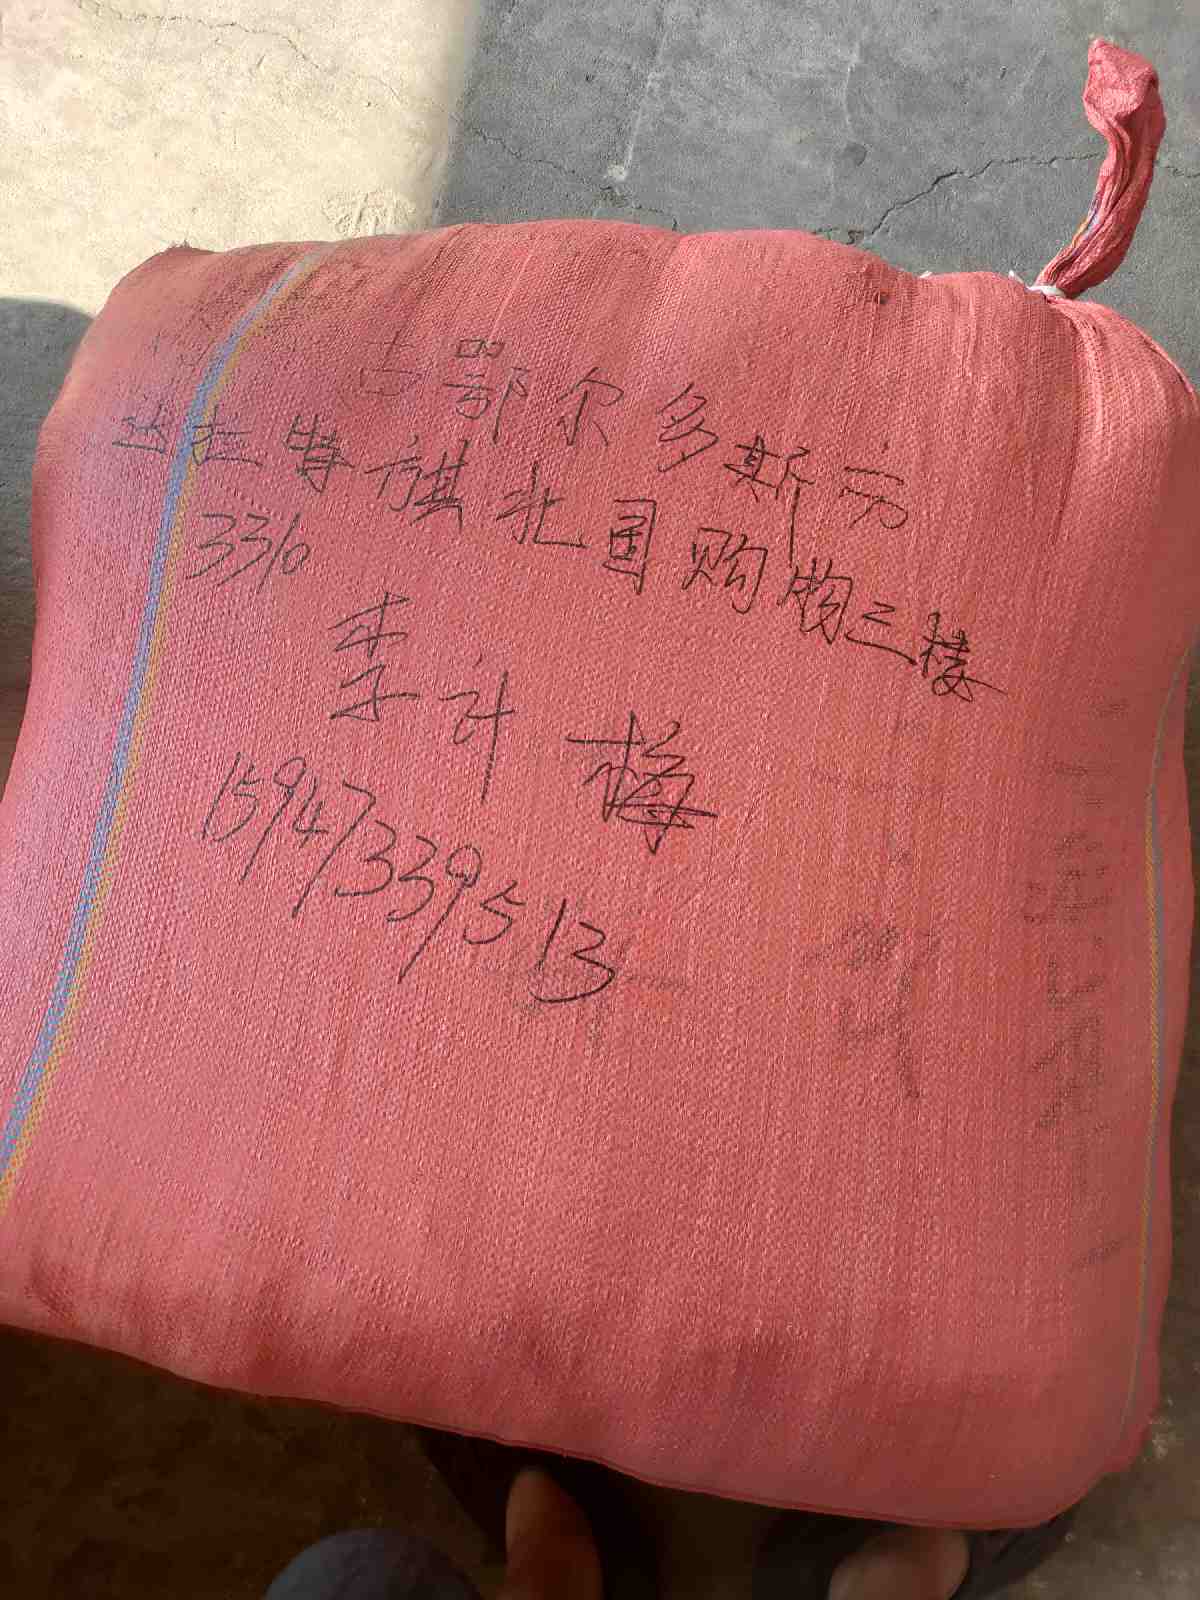 古鄂尔多斯市
达拉特旗北国购物三楼
3310
李计梅
15947339513